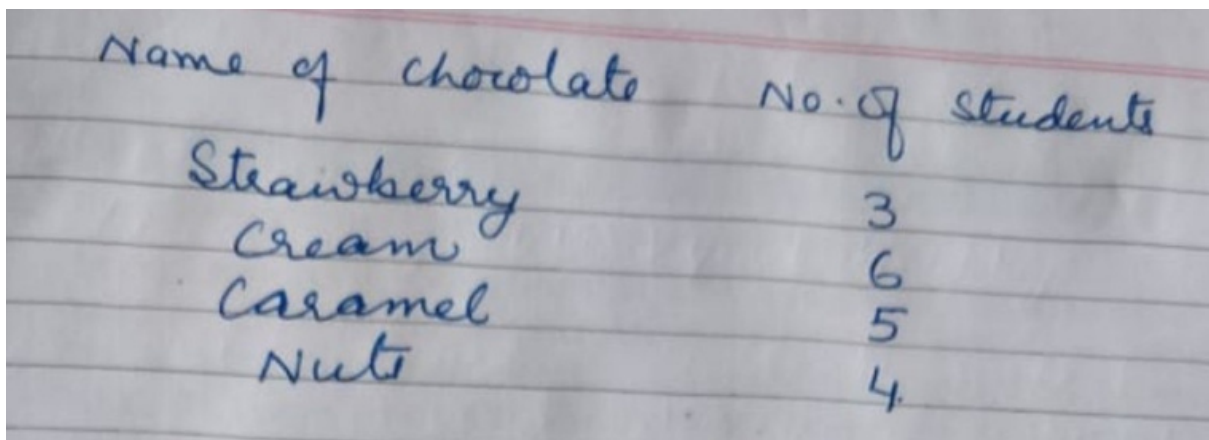 Name of chocolate No. of students
Strawberry 3
Cream 6
Caramel 5
Nuts 4